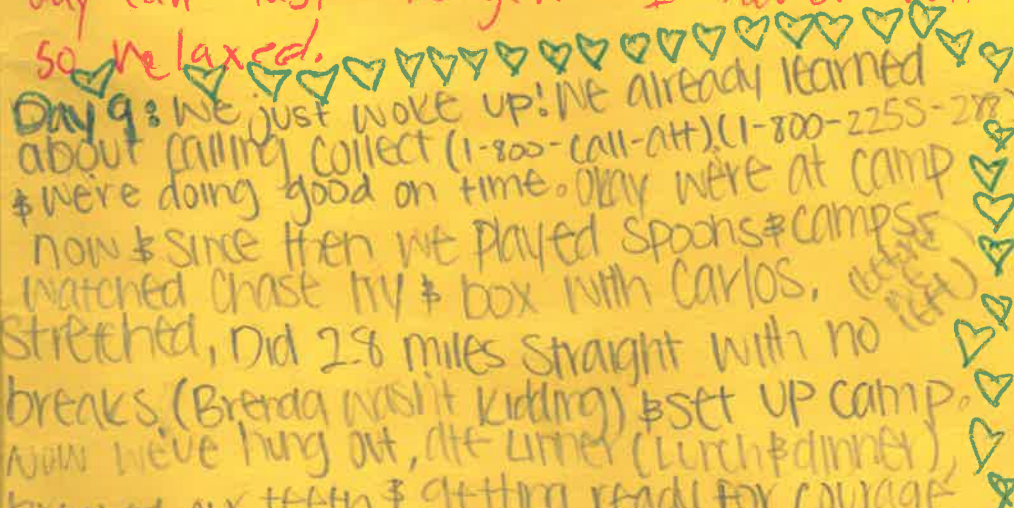 so relaxed.
Day 9: We just woke up! We already learned
about calling collect (1-800-call-att),(1-800-2255-288)
& we're doing good on time. Okay we're at camp
now & since then we played spoons & camps
(before we left)
watched Chase try & box with Carlos,
stretched, Did 2.8 miles straight with no
breaks, (Brenda wasn't kidding) & set up camp.
Now we've hung out, ate linner (Lunch & dinner),
our teeth & getting ready for courage